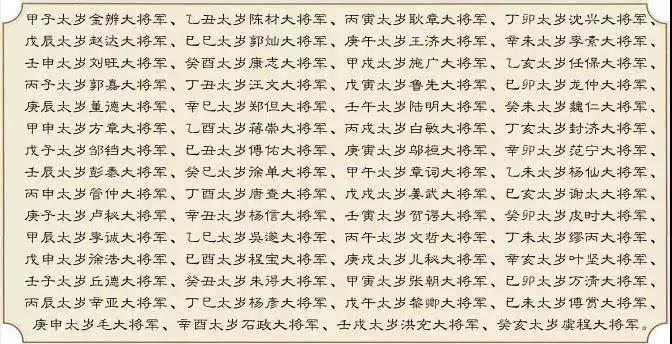 甲子太岁金辨大将军、乙丑太岁陈材大将军、丙寅太岁耿章大将军、丁卯太岁沈兴大将军、
戊辰太岁赵达大将军、己巳太岁郭灿大将军、庚午太岁王济大将军、辛未太岁李素大将军、
壬申太岁刘旺大将军、癸酉太岁康志大将军、甲戌太岁施广大将军、乙亥太岁任保大将军、
丙子太岁郭嘉大将军、丁丑太岁汪文大将军、戊寅太岁鲁先大将军、己卯太岁龙仲大将军、
庚辰太岁董德大将军、辛巳太岁郑但大将军、壬午太岁陆明大将军、癸未太岁魏仁大将军、
甲申太岁方章大将军、乙酉太岁蒋崇大将军、丙戌太岁白敏大将军、丁亥太岁封济大将军、
戊子太岁邹铛大将军、己丑太岁傅佑大将军、庚寅太岁邬桓大将军、辛卯太岁范宁大将军、
壬辰太岁彭泰大将军、癸巳太岁徐单大将军、甲午太岁章词大将军、乙未太岁杨仙大将军、
丙申太岁管仲大将军、丁酉太岁唐查大将军、戊戌太岁姜武大将军、己亥太岁谢太大将军、
庚子太岁卢秘大将军、辛丑太岁杨信大将军、壬寅太岁贺谔大将军、癸卯太岁皮时大将军、
甲辰太岁李诚大将军、乙巳太岁吴遂大将军、丙午太岁文哲大将军、丁未太岁缪丙大将军、
戊申太岁徐浩大将军、己酉太岁程宝大将军、庚戌太岁儿秘大将军、辛亥太岁叶坚大将军、
壬子太岁丘德大将军、癸丑太岁朱得大将军、甲寅太岁张朝大将军、己卯太岁万清大将军、
丙辰太岁辛亚大将军、丁巳太岁杨彦大将军、戊午太岁黎卿大将军、己未太岁傅赏大将军、
庚申太岁毛大将军、辛酉太岁石政大将军、壬戌太岁洪充大将军、癸亥太岁虞程大将军。